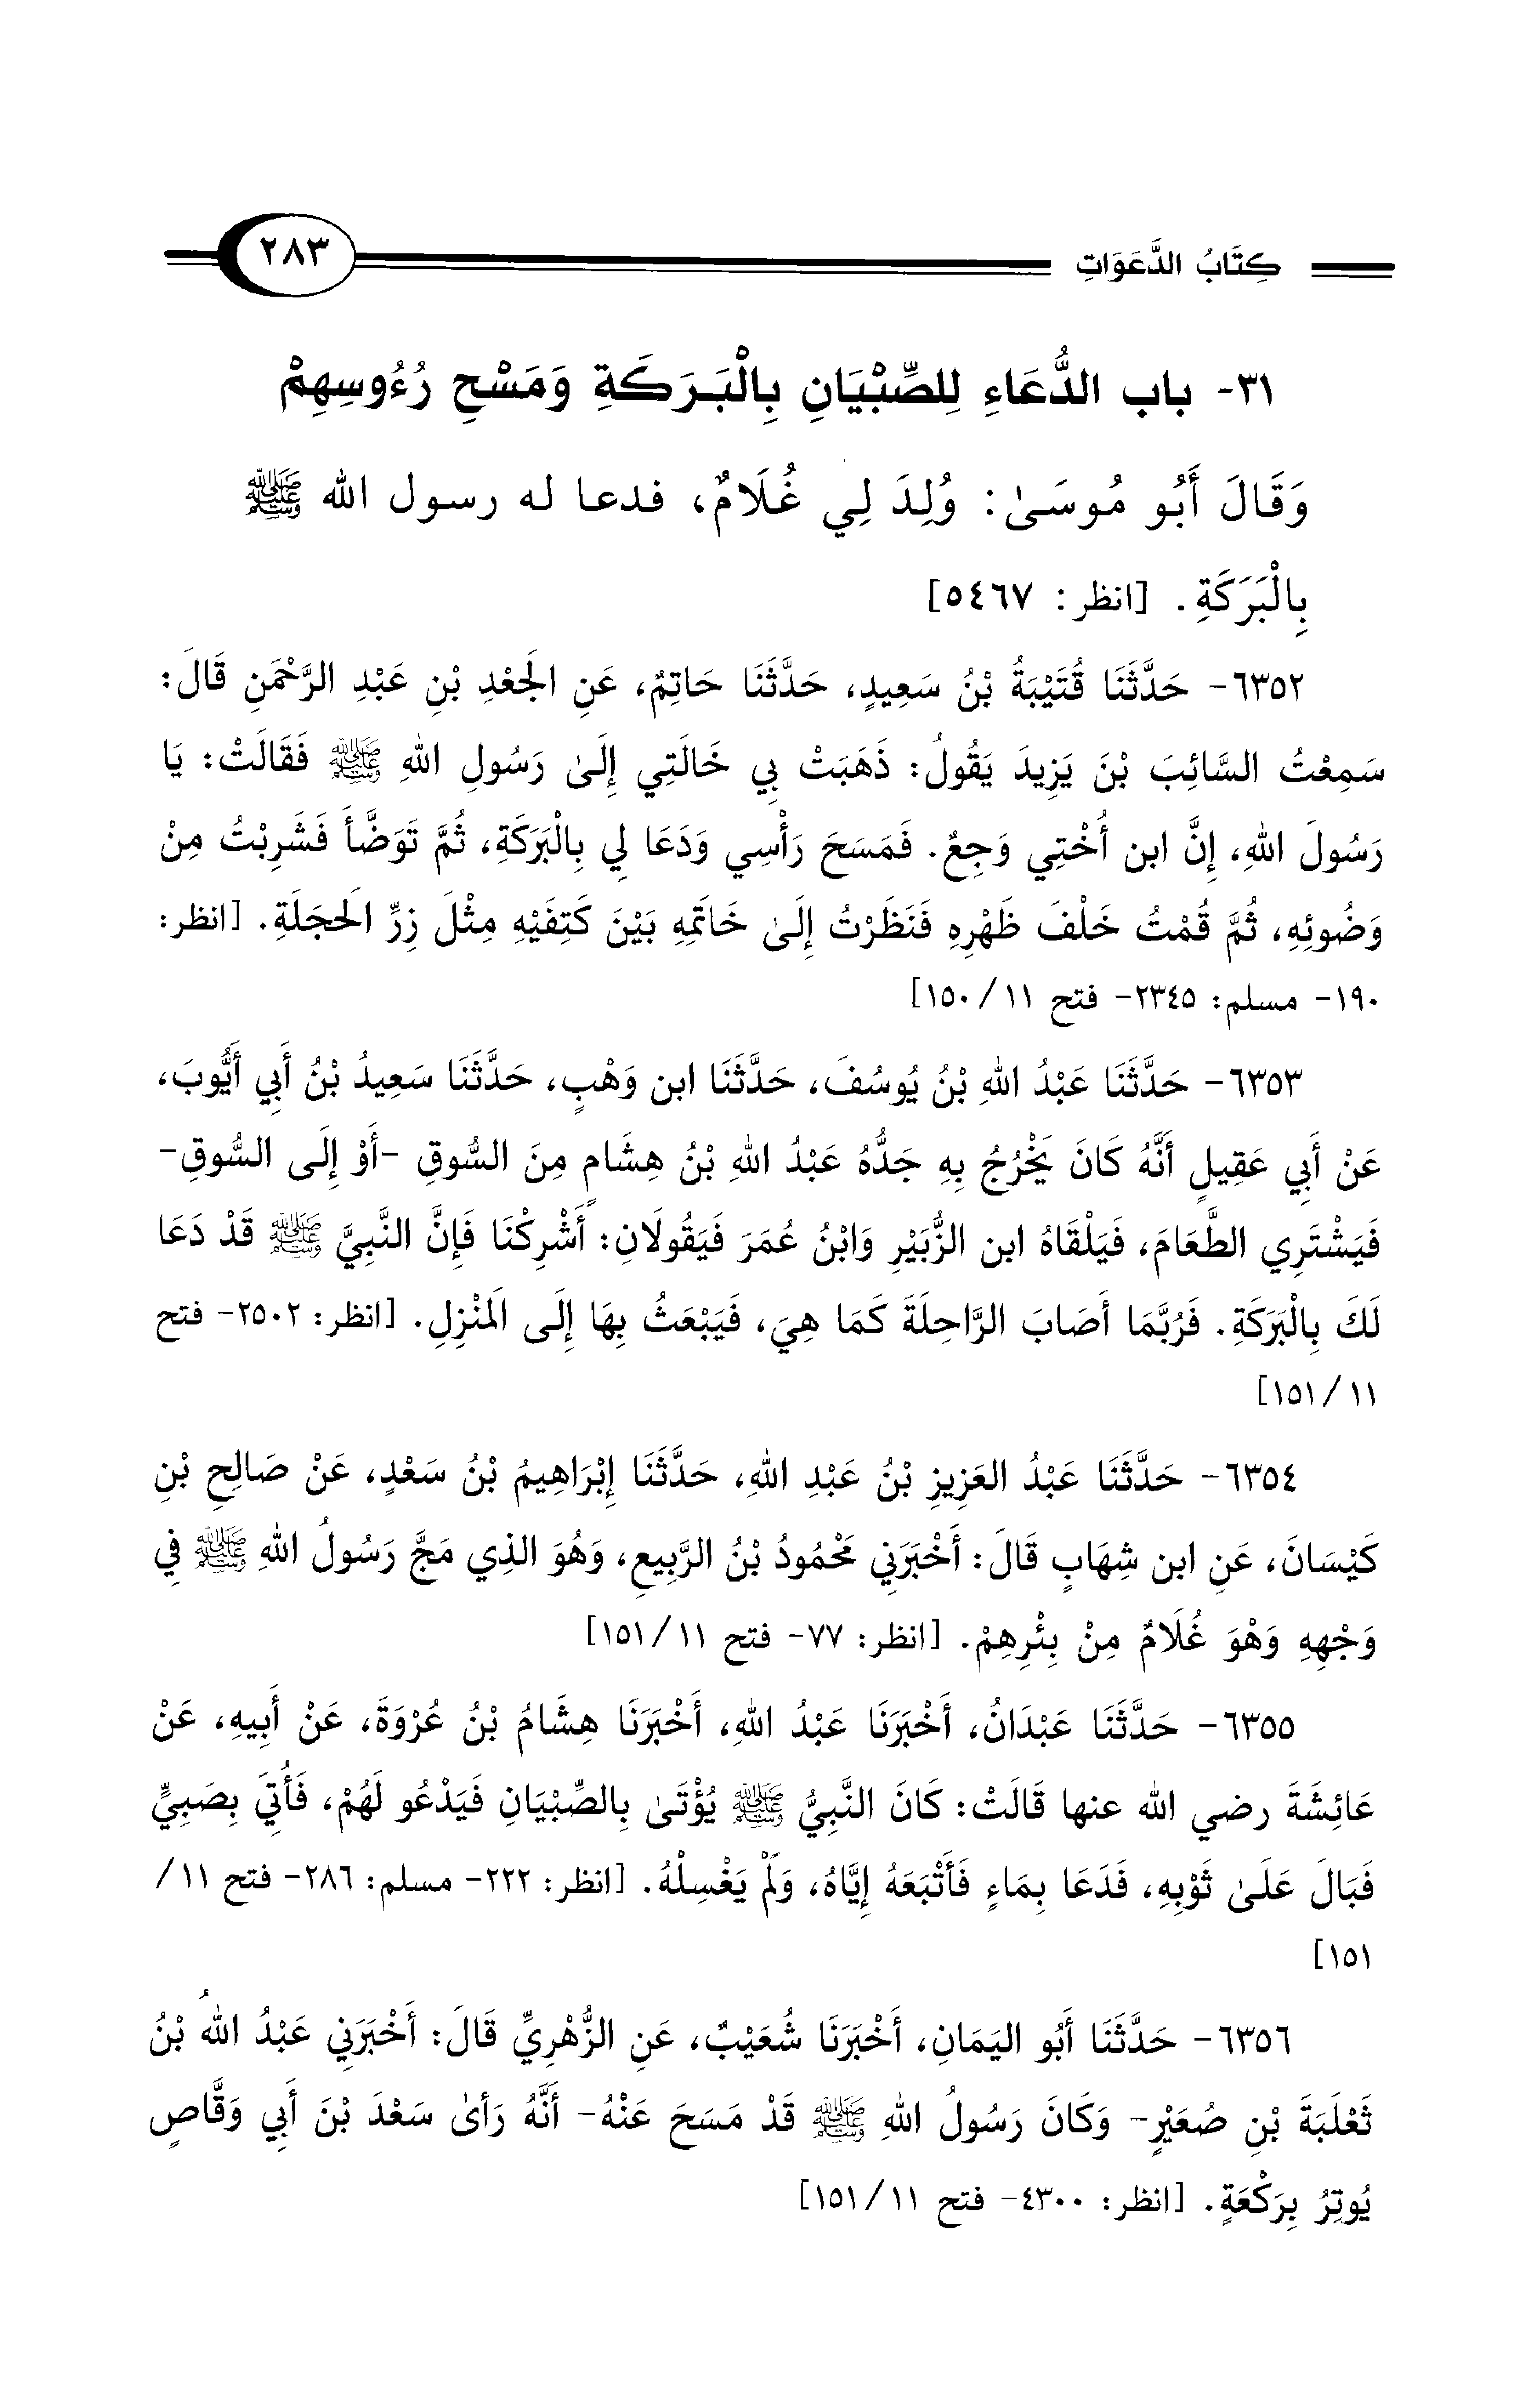 كِتَابُ الدَّعَوَاتِ ٢٨٣
٣١- باب الدُّعَاءِ لِلصِّبْيَانِ بِالْبَرَكَةِ وَمَسْحِ رُءُوسِهِمْ
وَقَالَ أَبُو مُوسَىٰ: وُلِدَ لِي غُلَامٌ، فدعا له رسول الله ﷺ
بِالْبَرَكَةِ. [انظر: ٥٤٦٧]
٦٣٥٢- حَدَّثَنَا قُتَيْبَةُ بْنُ سَعِيدٍ، حَدَّثَنَا حَاتِمٌ، عَنِ الجَعْدِ بْنِ عَبْدِ الرَّحْمَنِ قَالَ:
سَمِعْتُ السَّائِبَ بْنَ يَزِيدَ يَقُولُ: ذَهَبَتْ بِي خَالَتِي إِلَىٰ رَسُولِ اللهِ ﷺ فَقَالَتْ: يَا
رَسُولَ اللهِ، إِنَّ ابن أُخْتِي وَجِعٌ. فَمَسَحَ رَأْسِي وَدَعَا لِي بِالْبَرَكَةِ، ثُمَّ تَوَضَّأَ فَشَرِبْتُ مِنْ
وَضُوئِهِ، ثُمَّ قُمْتُ خَلْفَ ظَهْرِهِ فَنَظَرْتُ إِلَىٰ خَاتَمِهِ بَيْنَ كَتِفَيْهِ مِثْلَ زِرِّ الَحجَلَةِ. [انظر:
١٩٠- مسلم: ٢٣٤٥- فتح ١١/ ١٥٠]
٦٣٥٣- حَدَّثَنَا عَبْدُ اللهِ بْنُ يُوسُفَ، حَدَّثَنَا ابن وَهْبٍ، حَدَّثَنَا سَعِيدُ بْنُ أَبِي أَيُّوبَ،
عَنْ أَبِي عَقِيلٍ أَنَّهُ كَانَ يَخْرُجُ بِهِ جَدُّهُ عَبْدُ اللهِ بْنُ هِشَامٍ مِنَ السُّوقِ -أَوْ إِلَى السُّوقِ-
فَيَشْتَرِي الطَّعَامَ، فَيَلْقَاهُ ابن الزُّبَيْرِ وَابْنُ عُمَرَ فَيَقُولَانِ: أَشْرِكْنَا فَإِنَّ النَّبِيَّ ﷺ قَدْ دَعَا
لَكَ بِالْبَرَكَةِ. فَرُبَّمَا أَصَابَ الرَّاحِلَةَ كَمَا هِيَ، فَيَبْعَثُ بِهَا إِلَى المَنْزِلِ. [انظر: ٢٥٠٢- فتح
١١/ ١٥١]
٦٣٥٤- حَدَّثَنَا عَبْدُ العَزِيزِ بْنُ عَبْدِ اللهِ، حَدَّثَنَا إِبْرَاهِيمُ بْنُ سَعْدٍ، عَنْ صَالِحِ بْنِ
كَيْسَانَ، عَنِ ابن شِهَابٍ قَالَ: أَخْبَرَنِي مَحْمُودُ بْنُ الرَّبِيعِ، وَهُوَ الذِي مَجَّ رَسُولُ اللهِ ﷺ فِي
وَجْهِهِ وَهْوَ غُلَامٌ مِنْ بِئْرِهِمْ. [انظر: ٧٧- فتح ١١/ ١٥١]
٦٣٥٥- حَدَّثَنَا عَبْدَانُ، أَخْبَرَنَا عَبْدُ اللهِ، أَخْبَرَنَا هِشَامُ بْنُ عُرْوَةَ، عَنْ أَبِيهِ، عَنْ
عَائِشَةَ رضي الله عنها قَالَتْ: كَانَ النَّبِيُّ ﷺ يُؤْتَىٰ بِالصِّبْيَانِ فَيَدْعُو لَهُمْ، فَأُتِيَ بِصَبِيٍّ
فَبَالَ عَلَىٰ ثَوْبِهِ، فَدَعَا بِمَاءٍ فَأَتْبَعَهُ إِيَّاهُ، وَلَمْ يَغْسِلْهُ. [انظر: ٢٢٢- مسلم: ٢٨٦- فتح ١١/
١٥١]
٦٣٥٦- حَدَّثَنَا أَبُو اليَمَانِ، أَخْبَرَنَا شُعَيْبٌ، عَنِ الزُّهْرِيِّ قَالَ: أَخْبَرَنِي عَبْدُ اللهُ بْنُ
ثَعْلَبَةَ بْنِ صُعَيْرٍ- وَكَانَ رَسُولُ اللهِ ﷺ قَدْ مَسَحَ عَنْهُ- أَنَّهُ رَأىٰ سَعْدَ بْنَ أَبِي وَقَّاصٍ
يُوتِرُ بِرَكْعَةٍ. [انظر: ٤٣٠٠- فتح ١١/ ١٥١]